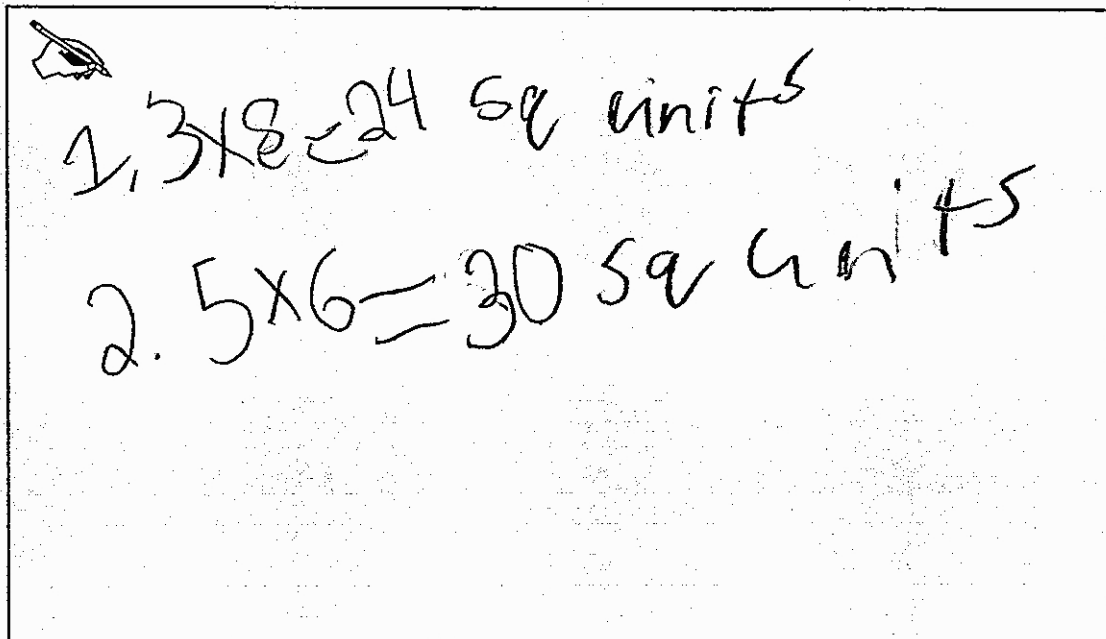 1. 3x8=24 sq units
2. 5x6=30 sq units